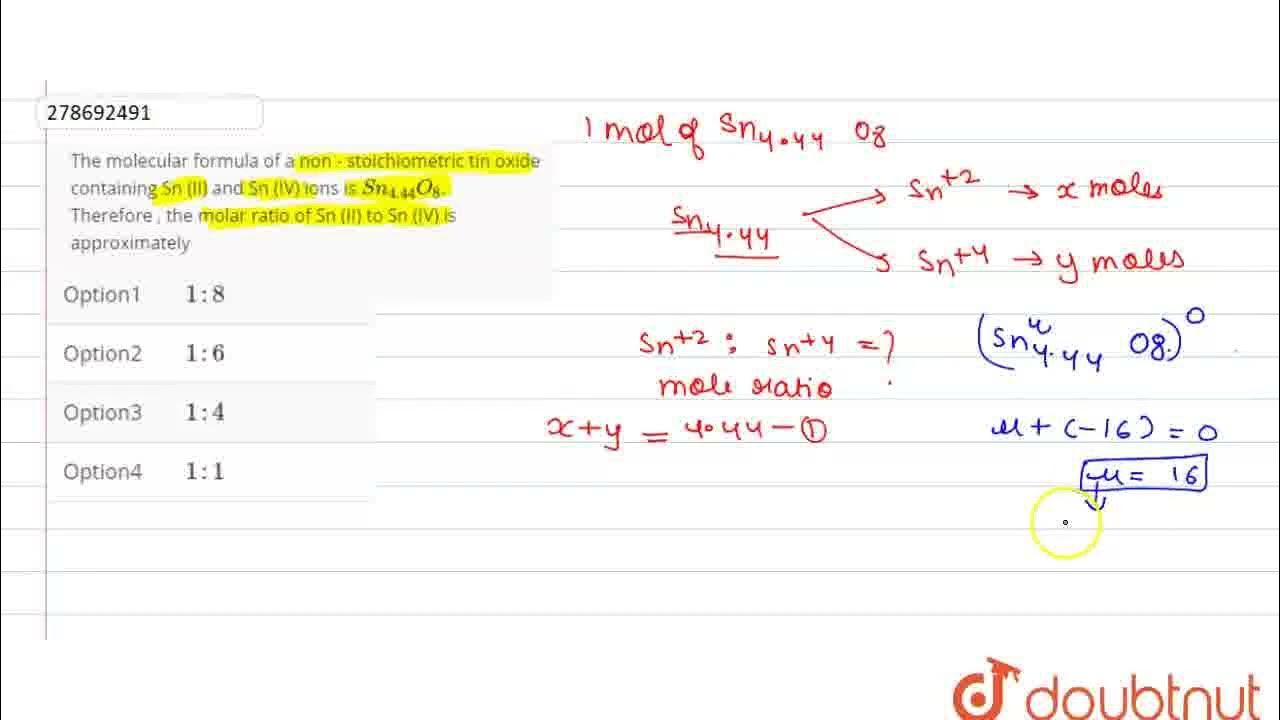 278692491
The molecular formula of a non - stoichiometric tin oxide
containing Sn (II) and Sn (IV) ions is Sn4.44O8.
Therefore , the molar ratio of Sn (II) to Sn (IV) is
approximately
Option1 1 : 8
Option2 1 : 6
Option3 1 : 4
Option4 1 : 1
1 mol of Sn4.44 O8
Sn4.44
Sn+2 → x moles
Sn+4 → y moles
Sn+2 : Sn+4 = ?
mole ratio
x + y = 4.44 — ①
(Sn4.44 O8)0
+ (-16) = 0
= 16
doubtnut